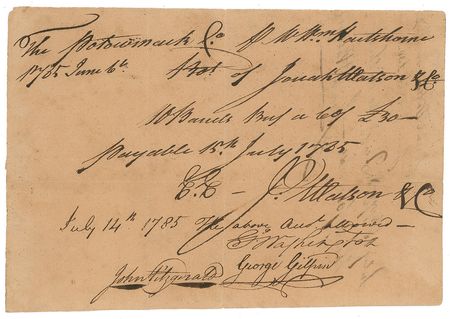 The Potowmack Co. P Mr. Wm. Hartshorne
1785 June 6th. Bot. of Josiah Watson & Co.
10 Barrels Beef a 60/ £30—
Payable 15th. July 1785
E.E — J. Watson & Co
July 14th 1785 The above Acct. allowed —
G. Washington
John Fitzgerald George Gilpin